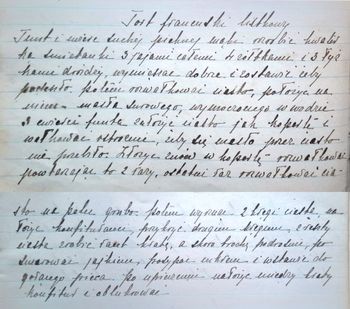 Tort francuski listkowy
Funt i ćwierć suchej pięknej mąki zrobić kwaterką
śmietanki 3 jajami całemi 4 żółtkami i 3 łyżkami
drożdży, wymieszać dobrze i zostawić żeby
podeszło. potem rozwałkować ciasto, położyć na
niem masła surowego, wymoczonego w wodzie
3 ćwierci funta założyć ciasto jak kopertę i
wałkować ostrożnie, żeby się masło przez ciasto
nie przebiło. Złożyć znów w kopertę rozwałkować
powtarzając to 2 razy, ostatni raz rozwałkować cia-
sto na palec grubo. potem wyrznąć 2 kręgi ciasta, na-
łożyć konfiturami, przykryć drugim kręgiem, z reszty
ciasta zrobić kratkę, a skoro trochę podrośnie, po-
smarować jajkiem, posypać cukrem i wstawić do
gorącego pieca. Po upieczeniu nałożyć między kraty
konfitur i oblukrować